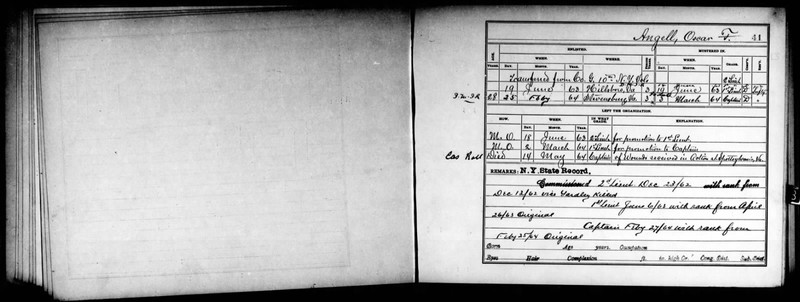 Angell, Oscar F. 41
ENLISTED. MUSTERED IN.
YEARS. WHEN. WHERE. WHEN. GRADE.
DAY. MONTH. YEAR. DAY. MONTH. YEAR.
Transferred from Co. G. 10th N.Y. Vols 2 Lieut
19 June 63 Hillsboro, Va 3 19 June 63 1st Lieut D
28 25 Feby 64 Stevensburg, Va 3 3 March 64 Captain D "
LEFT THE ORGANIZATION
HOW. WHEN. IN WHAT GRADE. EXPLANATION.
DAY. MONTH. YEAR.
M. O. 18 June 63 2 Lieut for promotion to 1st Lieut.
M. O. 2 March 64 1st Lieut for promotion to Captain
Cas Roll Died 14 May 64 Captain of Wounds received in Action at Spottsylvania, Va.
REMARKS: N. Y. State Record,
Commissioned 2d Lieut Dec 23/62 with rank from
Dec 13/62 vice Yardley Killed
1st Lieut June 6/63 with rank from April
26/63 Original
Captain Feby 27/64 with rank from
Feby 25/64 Original
Born Age years. Occupation
Eyes Hair Complexion ft. in. high Co.